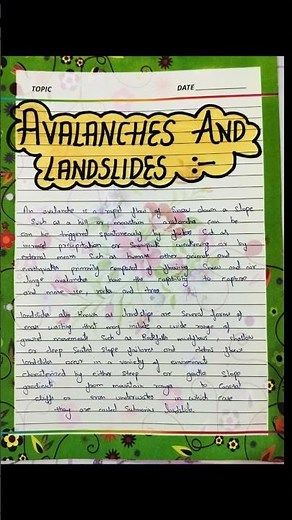 TOPIC
DATE
AVALANCHES AND
LANDSLIDES :-
An avalanche is a rapid flow of Snow down a Slope
Such as a hill or mountain avalanche can be
can be triggered spontaneously by factor Such as
precipitation or Snowpack weakening or by
external means Such as humans other animal and
earthquakes primarily composed of flowing Snow and air
large avalanches have the capability to capture
and move ice, rocks and trees
landslides also known as landslips are Several forms of
mass wasting that may include a wide range of
ground movements Such as Rockfalls mudflows shallow
or deep Seated Slope failures and debris flows
landslides occur in a variety of environments
characterized by either steep or gentle Slope
gradients from mountain ranges to Coastal
cliffs or even underwater in which case
they are called Submarine landslide